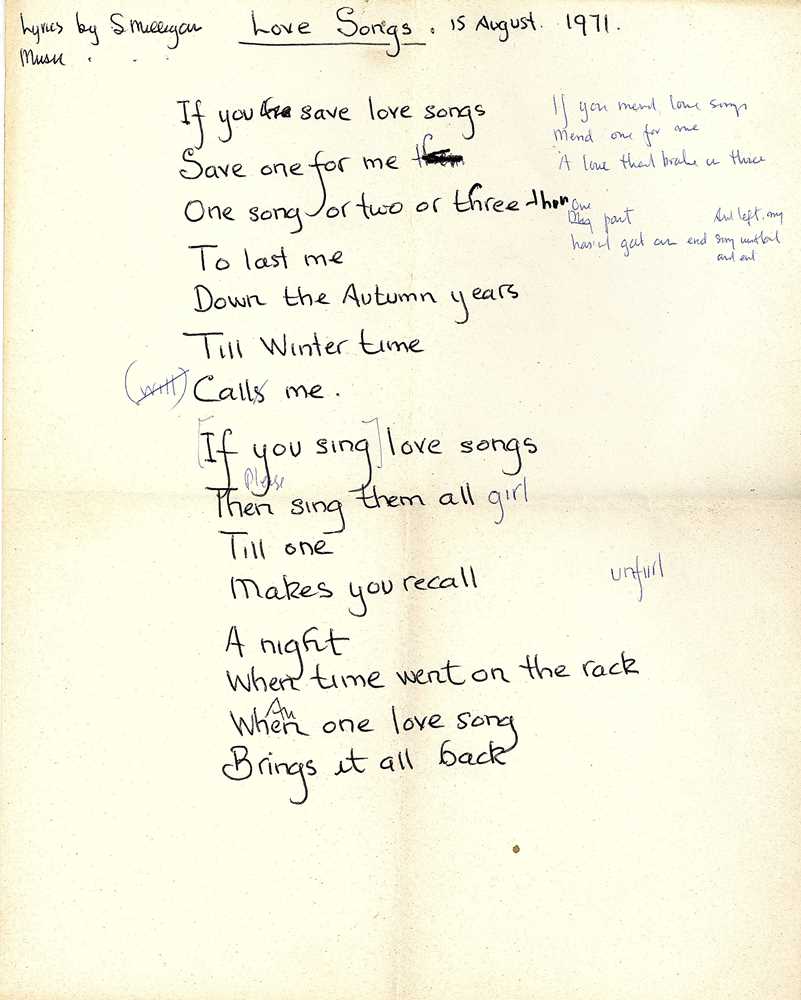 Lyrics by S Milligan Love Songs. 15 August. 1971.
Music . . .
If you save love songs
Save one for me
One song or two or three then
To last me
Down the Autumn years
Till Winter time
(will) Calls me.
[If you sing] love songs
Please
Then sing them all girl
Till one
Makes you recall
A night
When time went on the rack
An
When one love song
Brings it all back
If you mend love songs
Mend one for me
A love that broke in three
One
part
And left my
end
song without
and end
unfurl